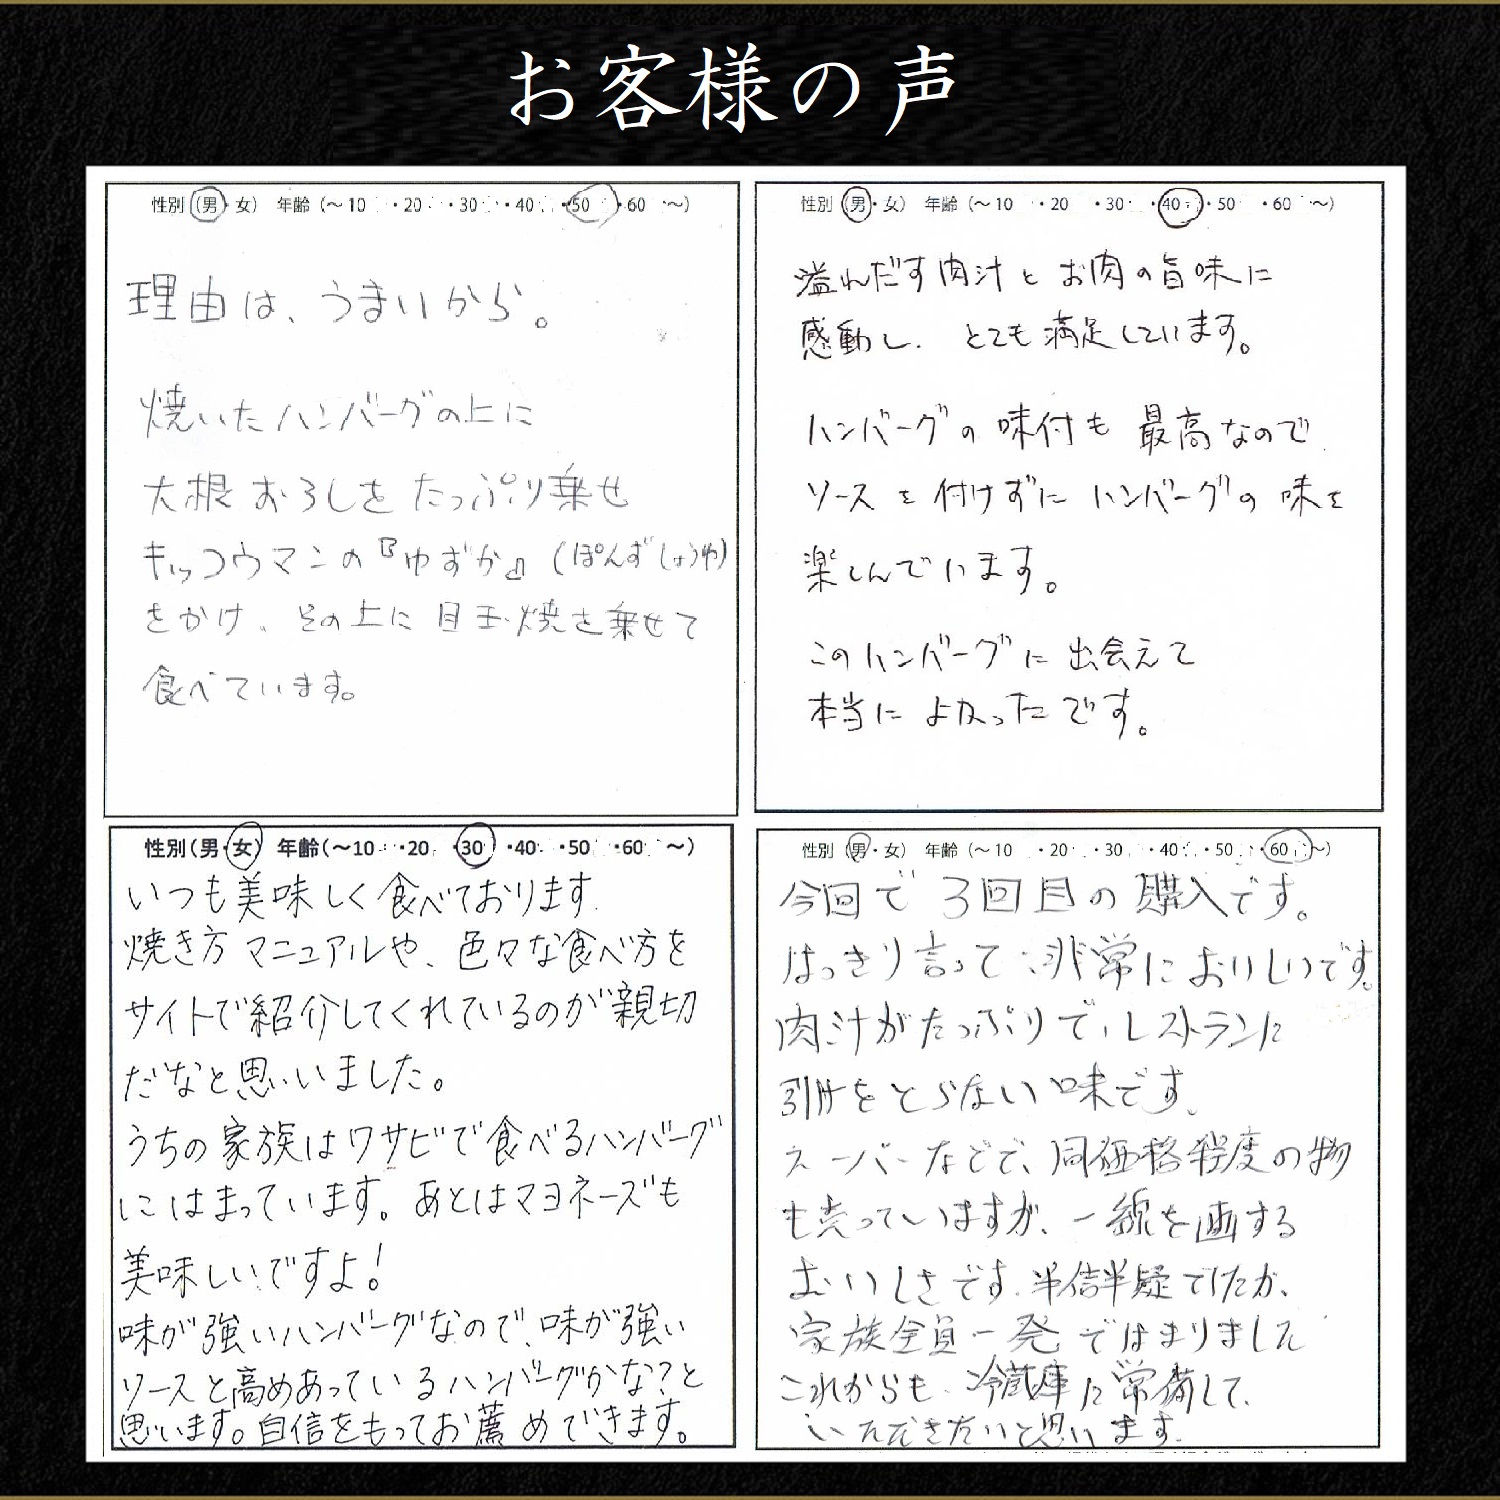 お客様の声
性別（男・女） 年齢（～10 ・20 ・30 ・40 ・50 ・60 ～）
理由は、うまいから。
焼いたハンバーグの上に
大根おろしをたっぷり乗せ
キッコウマンの『ゆずか』（ぽんずしょうゆ）
をかけ、その上に目玉焼を乗せて
食べています。
性別（男・女） 年齢（～10 ・20 ・30 ・40 ・50 ・60 ～）
溢れだす肉汁とお肉の旨味に
感動し、とても満足しています。
ハンバーグの味付も最高なので
ソースを付けずにハンバーグの味を
楽しんでいます。
このハンバーグに出会えて
本当によかったです。
性別（男・女） 年齢（～10 ・20 ・30 ・40 ・50 ・60 ～）
いつも美味しく食べております。
焼き方マニュアルや、色々な食べ方を
サイトで紹介してくれているのが親切
だなと思いいました。
うちの家族はワサビで食べるハンバーグ
にはまっています。あとはマヨネーズも
美味しいですよ！
味が強いハンバーグなので、味が強い
ソースと高めあっているハンバーグかな？と
思います。自信をもってお薦めできます。
性別（男・女） 年齢（～10 ・20 ・30 ・40 ・50 ・60 ～）
今回で3回目の購入です。
はっきり言って、非常においしいです。
肉汁がたっぷりで、レストランに
引けをとらない味です。
スーパーなどで、同価格程度の物
も売っていますが、一線を画する
おいしさです。半信半疑でしたが、
家族全員一発ではまりました
これからも、冷蔵庫に常備して、
いただきたいと思います。